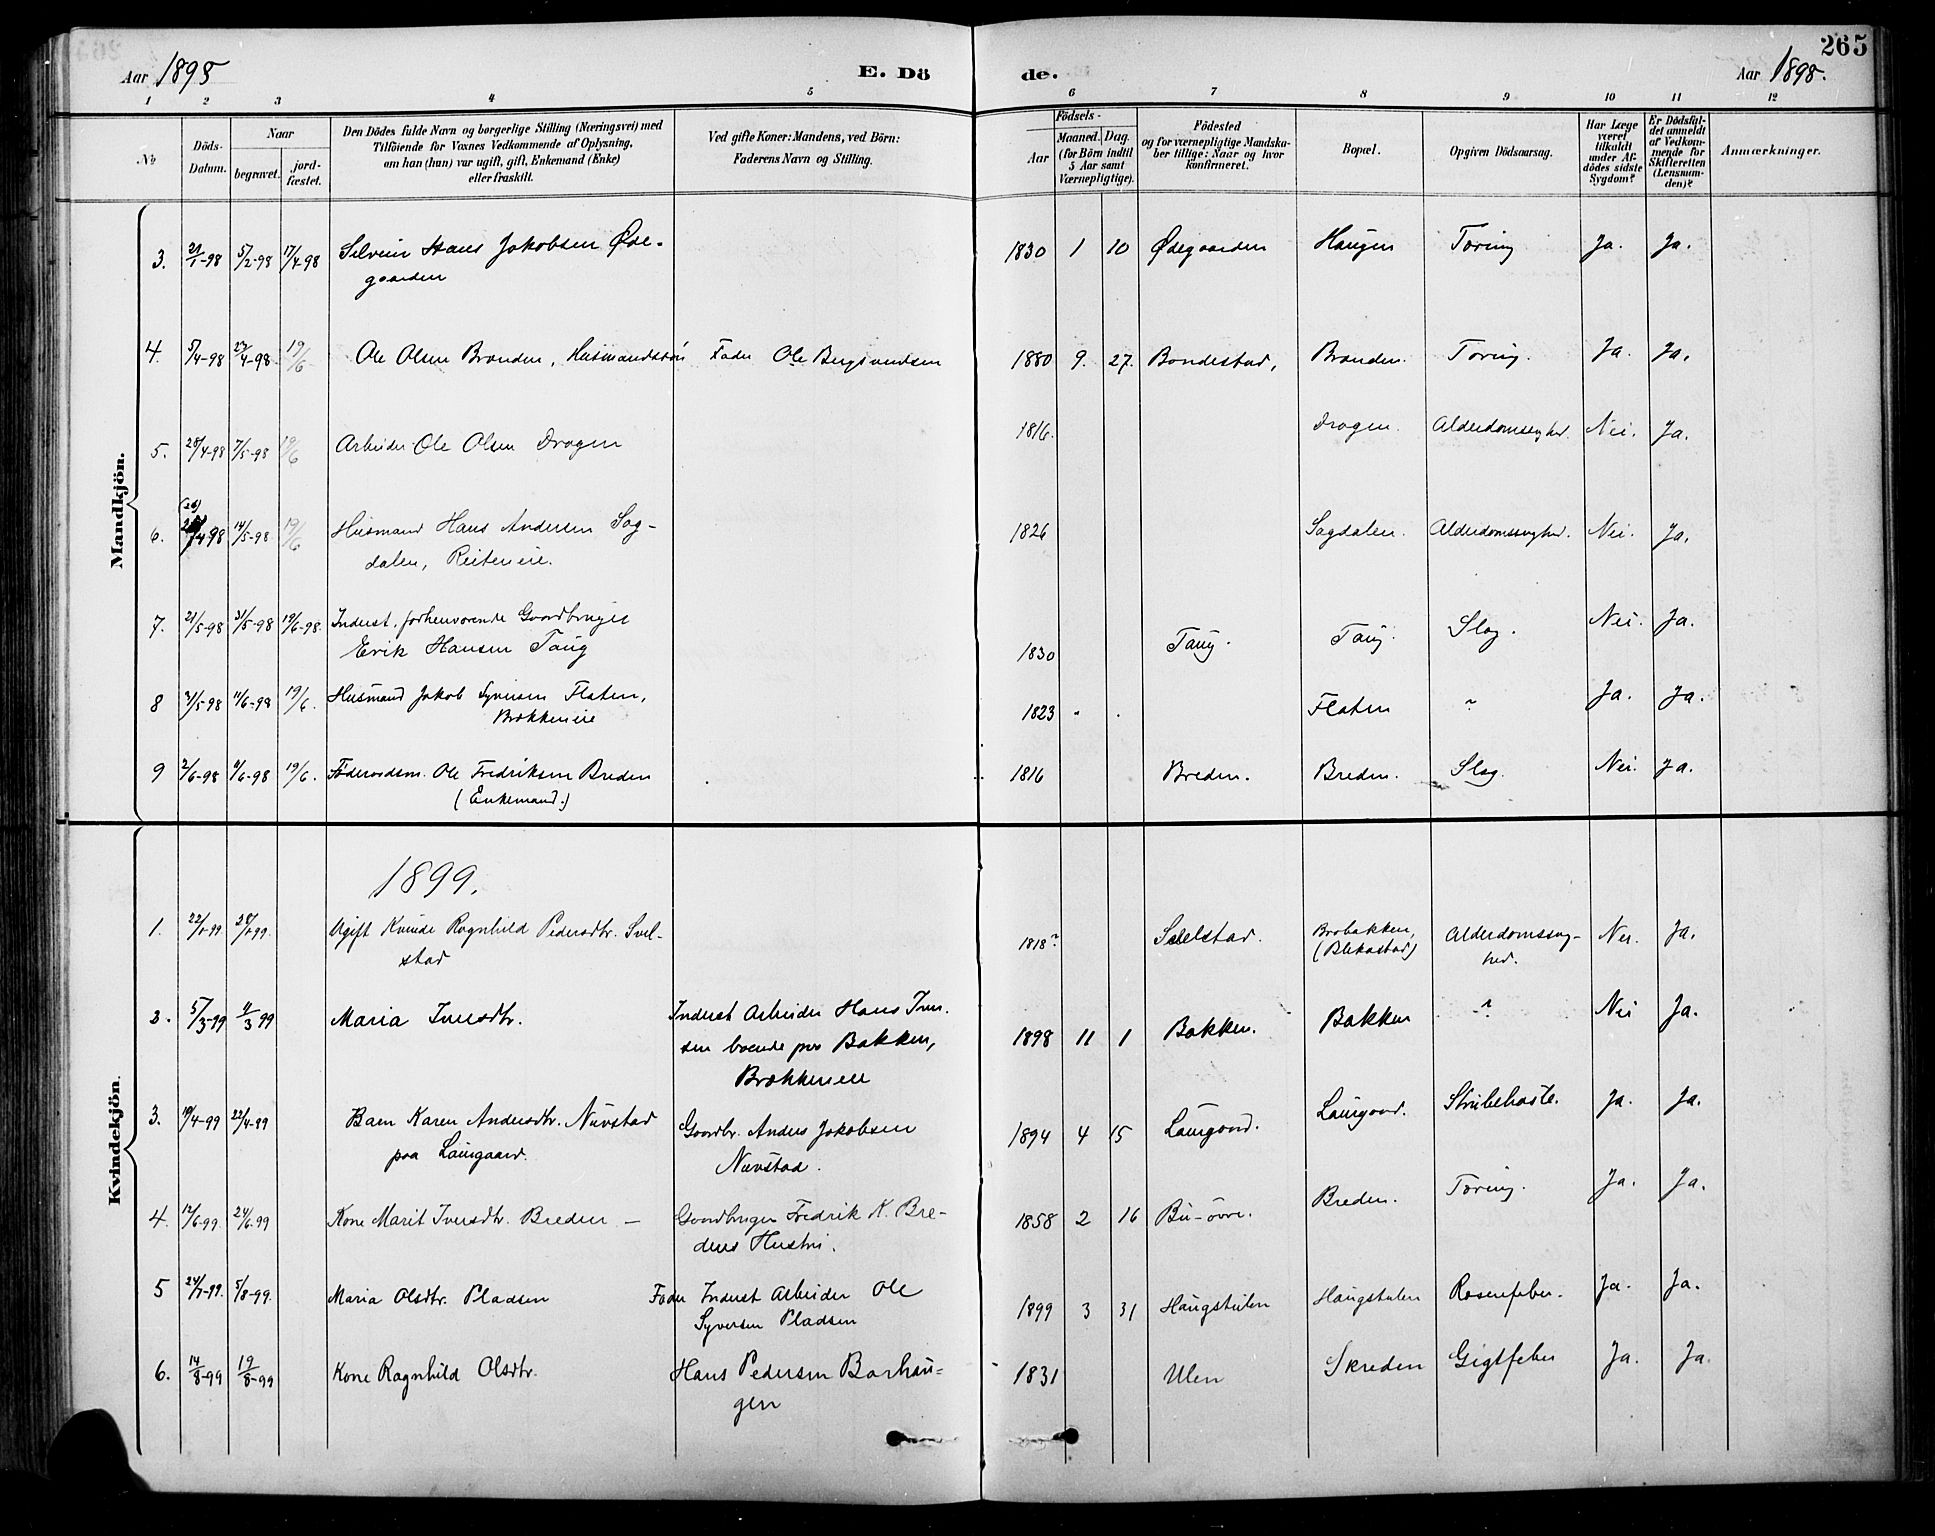 265
Aar 1898
E. Dö
de.
Aar 1898.
1 2 3 4 5 6 7 8 9 10 11 12
No
Döds-
Datum.
Naar
begravet.
jord-
fæstet.
Den Dödes fulde Navn og borgerlige Stilling (Næringsvei) med
Tilföiende for Voxnes Vedkommende af Oplysning,
om han (hun) var ugift, gift, Enkemand (Enke)
eller fraskilt.
Ved gifte Koner: Mandens, ved Börn:
Faderens Navn og Stilling.
Födsels-
Aar
Maaned. Dag.
(for Börn indtil
5 Aar samt
Værnepligtige).
Födested
og for værnepligtige Mandska-
ber tillige: Naar og hvor
konfirmeret.
Bopæl.
Opgiven Dödsaarsag.
Har Læge
været
tilkaldt
under Af-
dödes sidste
Sygdom?
Er Dödsfal-
det anmeldt
af Vedkom-
mende for
Skifteretten
(Lensman-
den)?
Anmærkninger.
Mandkjön.
3. 21/1-98 5/2-98 17/4-98 Selveier Hans Jakobsen Øde-
gaarden
1830 1 10 Ødegaarden Haugen Tæring Ja. Ja.
4. 5/4-98 23/4-98 19/6 Ole Olsen Brænden, Husmandssøn Fader Ole Bergsvendsen 1880 9. 27. Bondestad, Brænden. Tæring. Ja. Ja.
5. 28/4-98 7/5-98 19/6 Arbeider Ole Olsen Dragen 1816. Dragen. Alderdomssvghed. Nei. Ja.
6. 4 98 14/5-98 19/6 Husmand Hans Andersen Sag-
dalen, Reiteneie.
1826 Sagdalen. Alderdomssvghed. Nei. Ja.
7. 21/5-98 31/5-98 19/6-98. Inderst, forhenværende Gaardbruger
Erik Hansen Taug
1830 Taug. Taug. Slag. Nei. Ja.
8 31/5-98 11/6-98 19/6. Husmand Jakob Syversen Flaten,
Brækkeneie
1823 Flaten " Ja. Ja.
9 2/6-98 11/6-98 19/6. Föderaadsm. Ole Fredriksen Breden
(Enkemand.)
1816 Breden. Breden. Slag. Nei. Ja.
Kvindekjön.
1899.
1. 22/1-99 28/1-99. Ugift Kvinde Ragnhild Pedersdtr. Svel-
stad
1818? Svelstad. Brobakken,
(Blekastad)
Alderdomssvag-
hed.
Nei. Ja.
2. 5/3-99 11/3 99 Maria Iversdtr. Inderst Arbeider Hans Iver-
sen boende paa Bakken,
Brækkeneie
1898 11 1 Bakken. Bakken " Nei Ja.
3. 19/4-99 22/4-99 Barn Karen Andersdtr. Nävstad
paa Laurgaard.
Gaardbr. Anders Jakobsen
Nävstad.
1894 4 15 Laurgaard. Laurgaard. Strubehoste. Ja. Ja.
4. 12/6-99. 24/6.99 Kone Marit Iversdtr. Breden — Gaardbruger Fredrik K. Bre-
dens Hustru.
1858 2 16 Bu-övre. Breden. Tæring. Ja. Ja.
5 24/7-99. 5/8-99. Maria Olsdtr. Pladsen Fader Inderst Arbeider Ole
Syversen Pladsen
1899 3 31 Haugstulen Haugstulen Rosenfeber. Ja. Ja.
6. 14/8-99 19/8-99 Kone Ragnhild Olsdtr. Hans Pedersen Barhau-
gen
1831 Ulen Skreden Gigtfeber Ja. Ja.